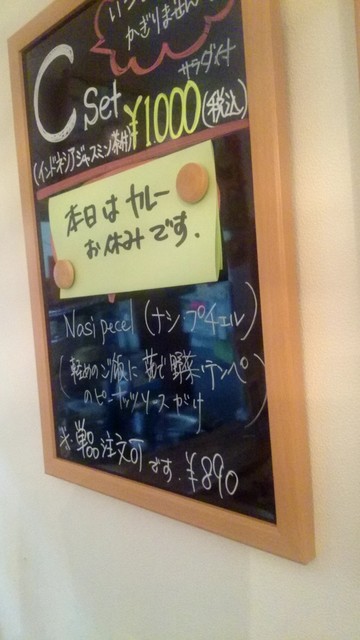 かぎりません
C Set ¥1.000(税込)
サラダ付
(インドネシアジャスミン茶付)
本日はカレー
お休みです.
Nasi pecel (ナシ・プチェル)
(軽めのご飯に茹で野菜・テンペ
のピーナッツソースがけ)
※単品注文可です.¥890